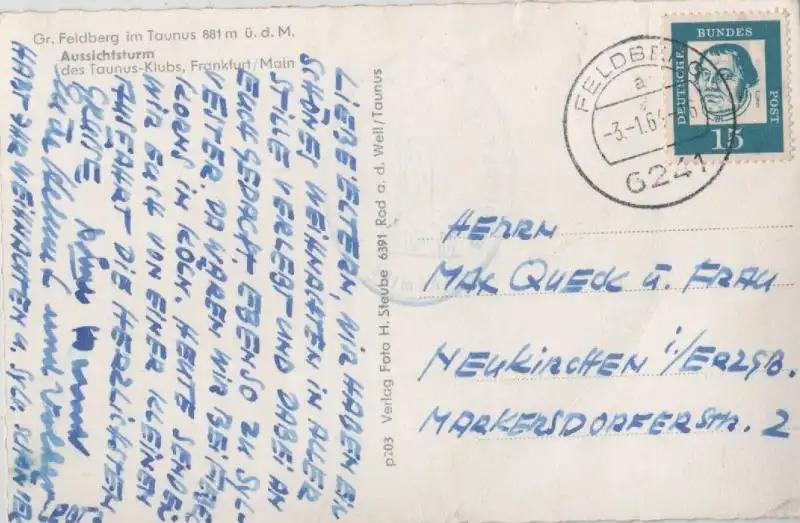 Gr. Feldberg im Taunus 881 m ü. d. M.
Aussichtsturm
des Taunus-Klubs, Frankfurt/Main
LIEBE ELTERN, WIR HABEN EIN
SCHÖNES WEIHNACHTEN IN ALLER
STILLE VERLEBT UND DABEI AN
EUCH GEDACHT. EBENSO ZU SYL-
VESTER. DA WAREN WIR BEI
KORNS IN KÖLN. HEUTE SENDEN
WIR EUCH VON EINER KLEINEN
AUSFAHRT DIE HERZLICHSTEN
GRÜSSE
Helmut und
HABT IHR WEIHNACHTEN U. SYLV. SCHÖN VER
p203 Verlag Foto H. Steube 6391 Rod a. d. Weil/Taunus
FELDBERG
a
-3.-1.64
6241
DEUTSCHE BUNDESPOST
15
HERRN
MAX QUECK U. FRAU
NEUKIRCHEN i/ERZGB.
MARKERSDORFERSTR. 2